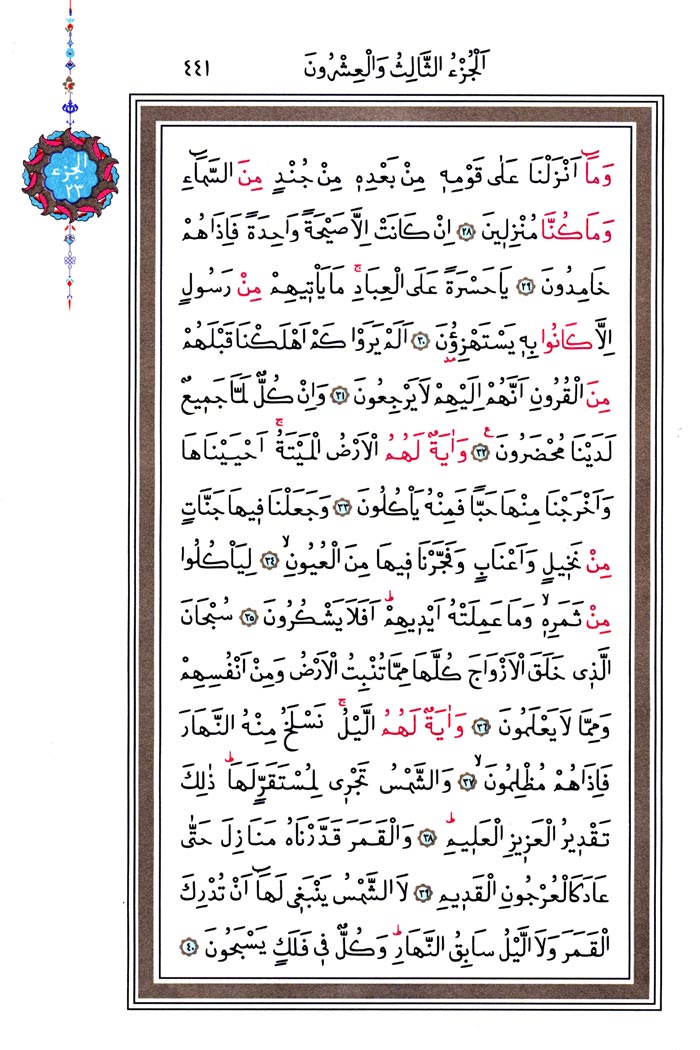 اَلْجُزْءُ الثَّالِثُ وَالْعِشْرُونَ ٤٤١
الجزء
٢٣
وَمَٓا اَنْزَلْنَا عَلٰى قَوْمِه۪ مِنْ بَعْدِه۪ مِنْ جُنْدٍ مِنَ السَّمَٓاءِ
وَمَا كُنَّا مُنْزِل۪ينَ ﴿٢٨﴾ اِنْ كَانَتْ اِلَّا صَيْحَةً وَاحِدَةً فَاِذَا هُمْ
خَامِدُونَ ﴿٢٩﴾ يَا حَسْرَةً عَلَى الْعِبَادِۚ مَا يَأْت۪يهِمْ مِنْ رَسُولٍ
اِلَّا كَانُوا بِه۪ يَسْتَهْزِؤُ۫نَ ﴿٣٠﴾ اَلَمْ يَرَوْا كَمْ اَهْلَكْنَا قَبْلَهُمْ
مِنَ الْقُرُونِ اَنَّهُمْ اِلَيْهِمْ لَا يَرْجِعُونَ ﴿٣١﴾ وَاِنْ كُلٌّ لَمَّا جَم۪يعٌ
لَدَيْنَا مُحْضَرُونَ۟ ﴿٣٢﴾ وَاٰيَةٌ لَهُمُ الْاَرْضُ الْمَيْتَةُۚ اَحْيَيْنَاهَا
وَاَخْرَجْنَا مِنْهَا حَبًّا فَمِنْهُ يَأْكُلُونَ ﴿٣٣﴾ وَجَعَلْنَا ف۪يهَا جَنَّاتٍ
مِنْ نَخ۪يلٍ وَاَعْنَابٍ وَفَجَّرْنَا ف۪يهَا مِنَ الْعُيُونِۙ ﴿٣٤﴾ لِيَأْكُلُوا
مِنْ ثَمَرِه۪ۙ وَمَا عَمِلَتْهُ اَيْد۪يهِمْۜ اَفَلَا يَشْكُرُونَ ﴿٣٥﴾ سُبْحَانَ
الَّذ۪ي خَلَقَ الْاَزْوَاجَ كُلَّهَا مِمَّا تُنْبِتُ الْاَرْضُ وَمِنْ اَنْفُسِهِمْ
وَمِمَّا لَا يَعْلَمُونَ ﴿٣٦﴾ وَاٰيَةٌ لَهُمُ الَّيْلُۚ نَسْلَخُ مِنْهُ النَّهَارَ
فَاِذَا هُمْ مُظْلِمُونَۙ ﴿٣٧﴾ وَالشَّمْسُ تَجْر۪ي لِمُسْتَقَرٍّ لَهَاۜ ذٰلِكَ
تَقْد۪يرُ الْعَز۪يزِ الْعَل۪يمِۜ ﴿٣٨﴾ وَالْقَمَرَ قَدَّرْنَاهُ مَنَازِلَ حَتّٰى
عَادَ كَالْعُرْجُونِ الْقَد۪يمِ ﴿٣٩﴾ لَا الشَّمْسُ يَنْبَغ۪ي لَهَٓا اَنْ تُدْرِكَ
الْقَمَرَ وَلَا الَّيْلُ سَابِقُ النَّهَارِۜ وَكُلٌّ ف۪ي فَلَكٍ يَسْبَحُونَ ﴿٤٠﴾